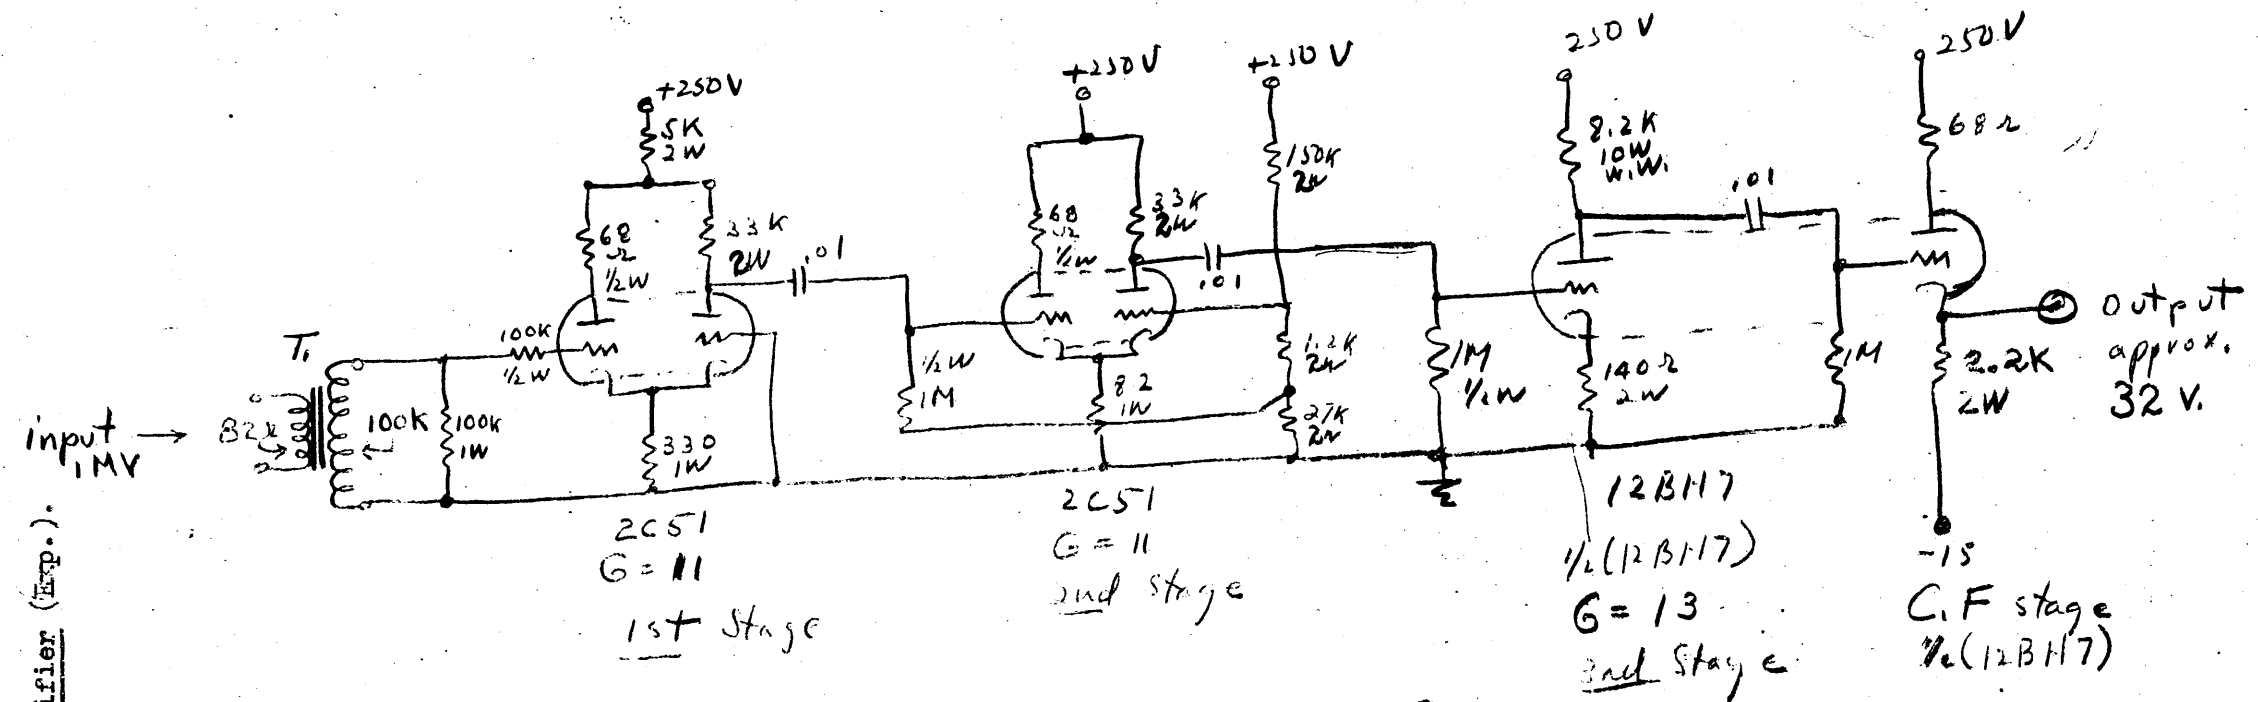 +250V
5K
2W
68
Ω
½W
33K
2W
.01
T₁
100K
½W
input →
1MV
100K
100K
1W
330
1W
2C51
G = 11
1st Stage
+250V
68
Ω
½W
33K
2W
.01
½W
1M
82
1W
2C51
G = 11
2nd Stage
+250V
150K
2W
1.2K
2W
27K
2W
1M
½W
250V
8.2K
10W
W.W.
.01
140Ω
2W
12BH7
½(12BH7)
G = 13
3rd Stage
250V
68Ω
1M
2.2K
2W
-15
Output
approx.
32 V.
C.F stage
½(12BH7)
ifier (Exp.).